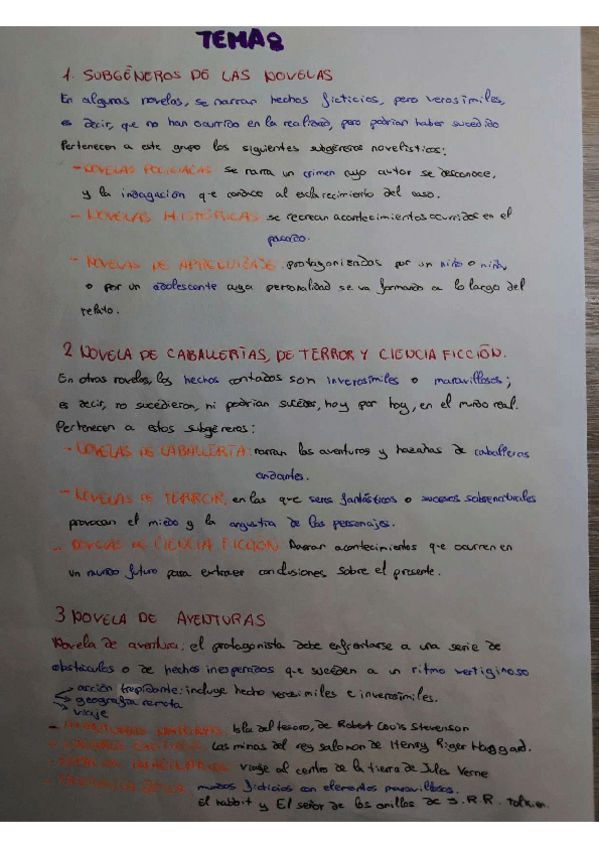 TEMA 8
1. SUBGÉNEROS DE LAS NOVELAS
En algunas novelas, se narran hechos ficticios, pero verosímiles,
es decir, que no han ocurrido en la realidad, pero podrían haber sucedido
Pertenecen a este grupo los siguientes subgéneros novelísticos:
- NOVELAS POLICIACAS se narra un crimen cuyo autor se desconoce,
y la indagación que conduce al esclarecimiento del caso.
- NOVELAS HISTÓRICAS se recrean acontecimientos ocurridos en el
pasado.
- NOVELAS DE APRENDIZAJE: protagonizadas por un niño o niña,
o por un adolescente cuya personalidad se va formando a lo largo del
relato.
2 NOVELA DE CABALLERÍAS, DE TERROR Y CIENCIA FICCIÓN.
En otras novelas, los hechos contados son inverosímiles o maravillosos;
es decir, no sucedieron, ni podrían suceder, hoy por hoy, en el mundo real.
Pertenecen a estos subgéneros:
- NOVELAS DE CABALLERÍA: narran las aventuras y hazañas de caballeros
andantes.
- NOVELAS DE TERROR, en las que seres fantásticos o sucesos sobrenaturales
provocan el miedo y la angustia de los personajes.
- NOVELAS DE CIENCIA FICCIÓN. Narran acontecimientos que ocurren en
un mundo futuro para extraer conclusiones sobre el presente.
3 NOVELA DE AVENTURAS
Novela de aventura; el protagonista debe enfrentarse a una serie de
obstáculos o de hechos inesperados que suceden a un ritmo vertiginoso
acción trepidante: incluye hecho verosímiles e inverosímiles.
geografía remota
viaje
- AVENTURAS Isla del tesoro, de Robert Louis Stevenson
- Las minas del rey salomon de Henry Riger Haggard.
- viaje al centro de la tierra de Jules Verne
- mundos ficticios con elementos maravillosos.
El habbit y El señor de los anillos de J.R.R. Tolkien